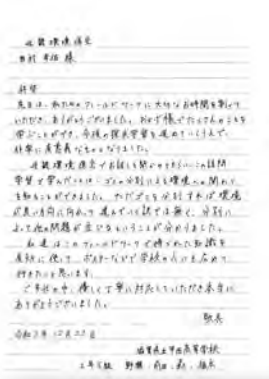 近畿環境保全
様
拝啓
先日は、私たちのフィールドワークに大切なお時間を割いて
いただき、ありがとうございました。おかげ様でたくさんのことを
学ぶことができ、今後の探究学習を進めていくうえで、
非常に有意義なものとなりました。
近畿環境保全でお話しを聞かせてもらい、この訪問
学習で学んだことは、ゴミの分別による環境への関わり
を知ることができました。ただゴミを分別すれば環境
が良い方向に向かって進んでいく訳では無く、分別に
よって他の問題が生じるということが分かりました。
私達はこのフィールドワークで得られた知識を
有効に使って、ポスターなどで学校の人にも広めて
行きたいと思います。
ご多忙の中、優しく丁寧に対応していただき本当に
ありがとうございました。
敬具
令和 年12月22日
滋賀県立 高等学校